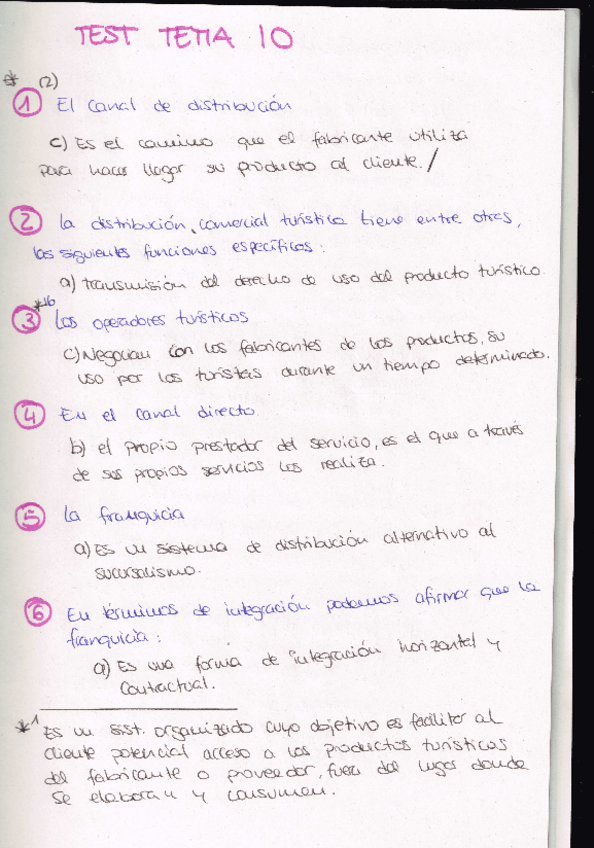 TEST TEMA 10
* (2)
① El canal de distribución
c) Es el camino que el fabricante utiliza
para hacer llegar su producto al cliente. /
② La distribución comercial turística tiene entre otras,
las siguientes funciones específicos:
a) transmisión del derecho de uso del producto turístico.
*16
③ Los operadores turísticos
c) Negocian con los fabricantes de los productos, su
uso por los turistas durante un tiempo determinado.
④ En el canal directo
b) el propio prestador del servicio, es el que a través
de sus propios servicios los realiza.
⑤ La franquicia
a) Es un sistema de distribución alternativo al
sucursalismo.
⑥ En términos de integración podemos afirmar que la
franquicia:
a) Es una forma de integración horizontal y
contractual.
*1 Es un sist. organizado cuyo objetivo es facilitar al
cliente potencial acceso a los productos turísticos
del fabricante o proveedor, fuera del lugar donde
se elaboran y consumen.